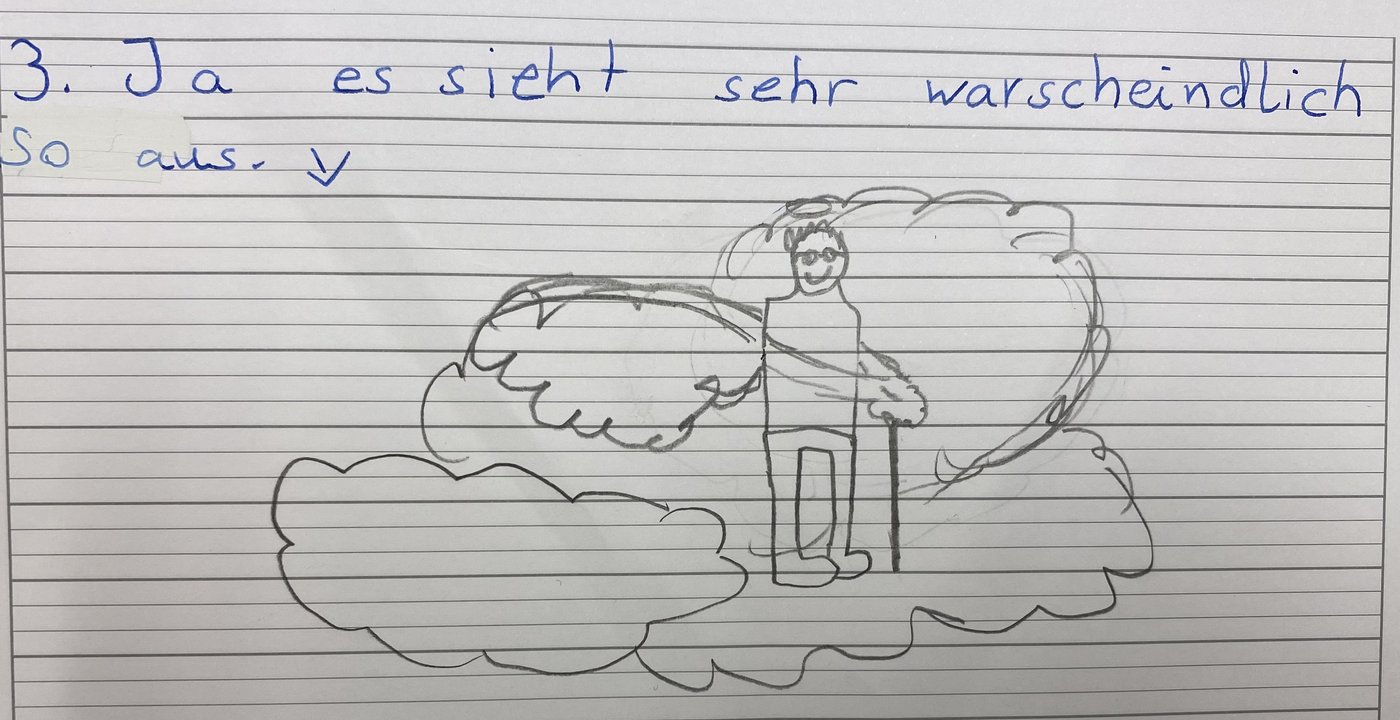 3. Ja es sieht sehr warscheindlich
so aus.